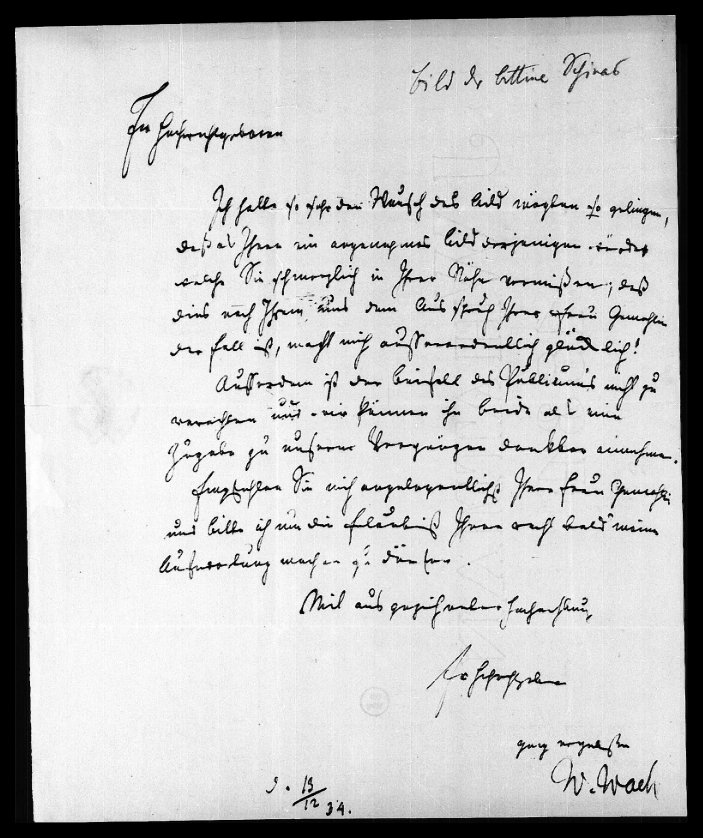 Bild der Bettine Schinas
Ew Hochwohlgeboren
Ich hatte so sehr den Wunsch das Bild möchte so gelingen,
daß es Ihnen ein angenehmes Bild derjenigen würde
welche Sie schmerzlich in Ihrer Nähe vermißen; daß
dies nach Ihrem und dem Ausspruch Ihrer Frau Gemahlin
der Fall ist, macht mich ausserordentlich glücklich!
Ausserdem ist der Beifall des Publicums nicht zu
verachten und wir können ihn beide als eine
Zugabe zu unserem Vergnügen dankbar annehmen.
Empfehlen Sie mich angelegentlichst Ihrer Frau Gemahlin
und bitte ich um die Erlaubniß Ihnen recht bald meine
Aufwartung machen zu dürfen.
Mit ausgezeichneter Hochachtung
Ew Hochwohlgeboren
ganz ergebenster
W. Wach
d. 13/12 34.